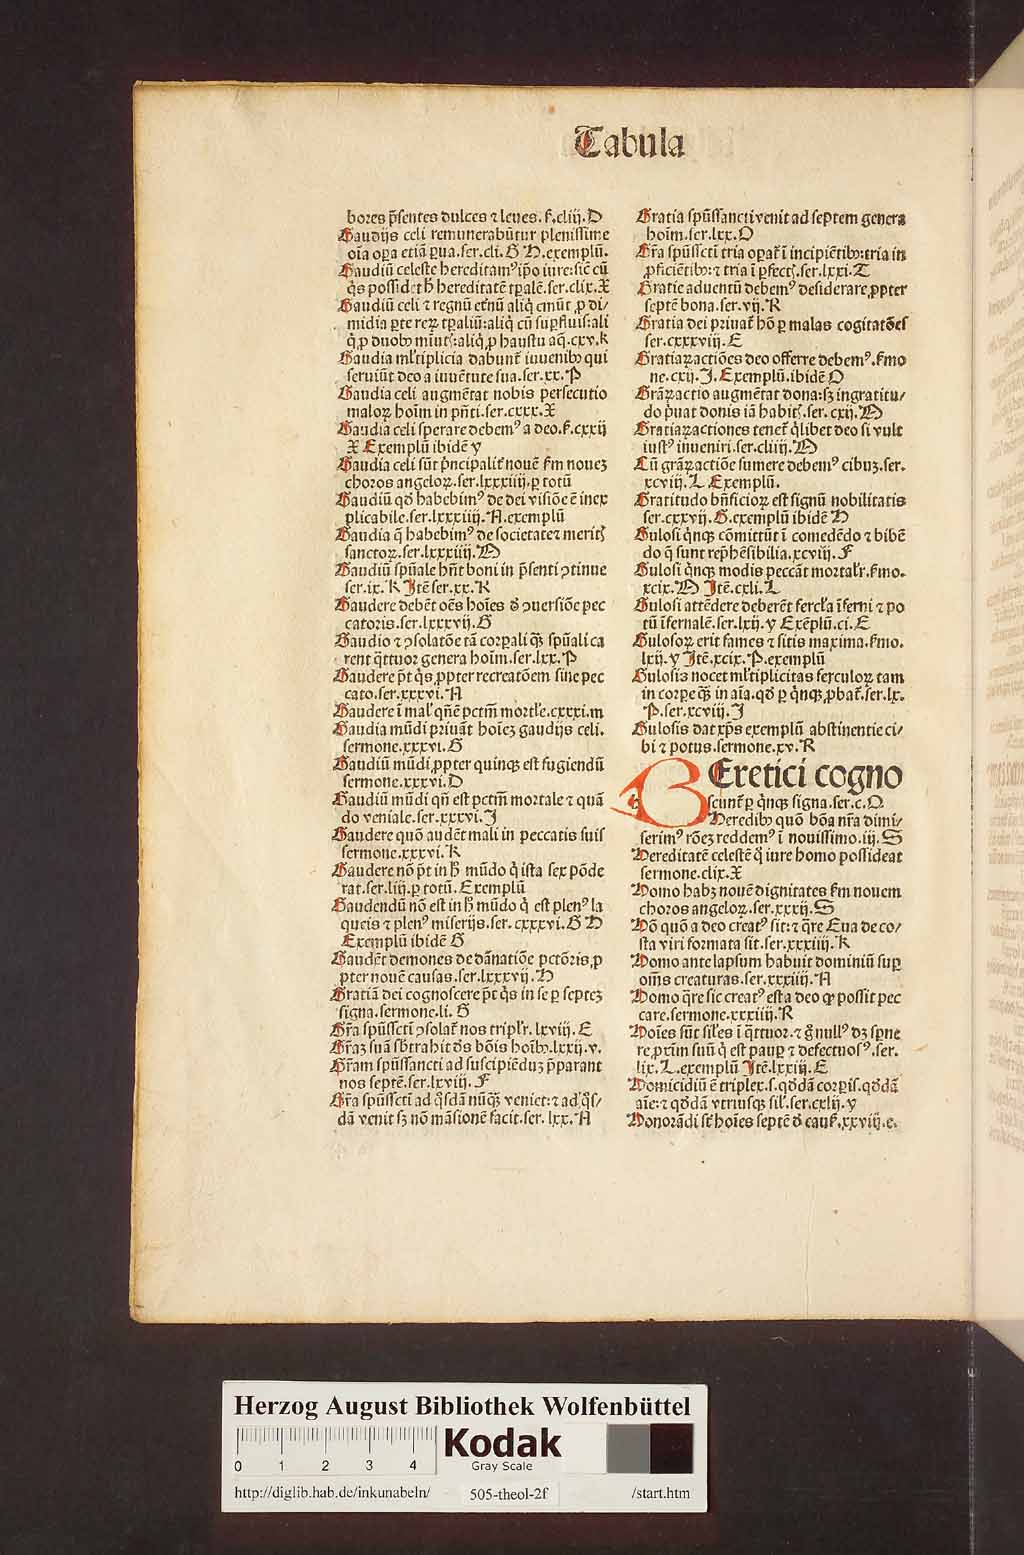 Tabula
bores p̄sentes dulces ⁊ leues. ẜ.cliij.D
Gaudijs celi remunerabūtur plenissime
oīa oꝑa etiā ꝑua.ser.cli. G H.exemplū.
Gaudiū celeste hereditamꝰ ip̄o iure: sic̄ cū
q̇s possidet h̄ hereditatē tꝑalē.ser.clix.X
Gaudiū celi ⁊ regnū et̄nū aliq̇ emūt ꝓ di/
midia ꝑte reꝝ tꝑaliū: aliq̇ cū suꝑfluis: ali
q̇ ꝓ duobꝰ mīutꝭ: aliq̇ ꝓ haustu aq̄.cxv.K
Gaudia ml̓tiplicia dabunt̄ iuuenibꝰ qui
seruiūt deo a iuuētute sua.ser.xx.P
Gaudia celi augmētat nobis persecutio
maloꝝ hoīm in pn̄ti.ser.cxxx.X
Gaudia celi sperare debemꝰ a deo.ẜ.cxxij
X Exemplū ibidē y
Gaudia celi sūt p̄ncipalit̄ nouē ẜm noueꝫ
choros angeloꝝ.ser.lxxxiiij.ꝑ totū
Gaudiū qd̄ habebimꝰ de dei visiōe ē inex
plicabile.ser.lxxxiiij.A.exemplū
Gaudia q̄ habebimꝰ de societate ⁊ meritꝭ
sanctoꝝ.ser.lxxxiiij.M
Gaudiū spūale hn̄t boni in p̄senti ↄtinue
ser.ix.K Itē ser.xx.K
Gaudere debēt oēs hoīes đ ↄuersiōe pec
catoris.ser.lxxxvij.G
Gaudio ⁊ ↄsolatōe tā corꝑali qꝫ spūali ca
rent q̄ttuor genera hoīm.ser.lxx.P
Gaudere pt̄ q̇s ꝓpter recreatōem sine pec
cato.ser.xxxvi.A
Gaudere ī mal̓ qn̄ē pctm̄ mortl̓e.cxxxi.m
Gaudia mūdi priuāt hoīeꝫ gaudijs celi.
sermone.xxxvi.G
Gaudiū mūdi ꝓpter quinqꝫ est fugiendū
sermone.xxxvi.D
Gaudiū mūdi qn̄ est pctm̄ mortale ⁊ quā
do veniale.ser.xxxvi.I
Gaudere quō audēt mali in peccatis suis
sermone.xxxvi.K
Gaudere nō pt̄ in h̄ mūdo q̇ ista sex pōde
rat.ser.liij.ꝑ totū. Exemplū
Gaudendū nō est in h̄ mūdo q̇ est plenꝰ la
queis ⁊ plenꝰ miserijs.ser. cxxxvi. G H
Exemplū ibidē G
Gaudēt demones de dānatiōe pctōris ꝓ
pter nouē causas.ser.lxxxvij.H
Gratiā dei cognoscere pt̄ q̇s in se ꝑ septeꝫ
signa.sermone.li. G
Gr̄a spūsscti ↄsolat̄ nos tripl̓r. lxviij. E
Gr̄aꝫ suā sb̄trahit đs bōis hoībꝰ.lxxij.v.
Gr̄am spūssancti ad suscipiēduꝫ p̄parant
nos septē.ser.lxviij. F
Gr̄a spūsscti ad q̇sdā nūqꝫ veniet: ⁊ ad q̇s/
dā venit sꝫ nō māsionē facit.ser. lxx.A
Gratia spūssancti venit ad septem genera
hoīm.ser.lxx.O
Gr̄a spūsscti tria oꝑat̄ ī incipiētibꝰ: tria in
ꝓficiētibꝰ: ⁊ tria ī ꝑfectꝭ.ser.lxxi.T
Gratie aduentū debemꝰ desiderare ꝓpter
septē bona.ser.vij.R
Gratia dei priuat̄ hō ꝑ malas cogitatōes
ser.cxxxviij.E
Gratiaꝝactiōes deo offerre debemꝰ.ẜmo
ne.cxij.I.Exemplū.ibidē O
Grāꝝactio augmētat dona: sꝫ ingratitu/
do p̄uat donis iā habitꝭ.ser. cxij.M
Gratiaꝝactiones tenet̄ q̇libet deo si vult
iustꝰ inueniri.ser.cliiij.M
Cū grāꝝactiōe sumere debemꝰ cibuꝫ.ser.
xcviij.L Exemplū.
Gratitudo bn̄ficioꝝ est signū nobilitatis
ser.cxxvij.G.exemplū ibidē H
Gulosi q̇nqꝫ cōmittūt ī comedēdo ⁊ bibē
do q̄ sunt rep̄hēsibilia.xcviij.F
Gulosi q̇nqꝫ modis peccāt mortal̓r.ẜmo.
xcix.M Itē.cxli.L
Gulosi attēdere deberēt fercl̓a īferni ⁊ po
tū īfernalē.ser.lxij.y Exēplū.ci.E
Gulosoꝝ erit fames ⁊ sitis maxima.ẜmo.
lxij.y Itē.xcix.P.exemplū
Gulosis nocet ml̓tiplicitas ferculoꝝ tam
in corꝑe qꝫ in aīa.qd̄ ꝑ q̇nqꝫ ꝓbat̄.ser.lx.
P.ser.xcviij.I
Gulosis dat xp̄s exemplū abstinentie ci/
bi ⁊ potus.sermone.xv.R
HEretici cogno
scunt̄ ꝑ q̇nqꝫ signa.ser.c.Q
Heredibꝰ quō bōa nr̄a dimi/
serimꝰ rōeꝫ reddemꝰ ī nouissimo.iij.S
Hereditatē celestē q̇ iure homo possideat
sermone.clix.X
Homo habꝫ nouē dignitates ẜm nouem
choros angeloꝝ.ser.xxxij.S
Hō quō a deo creatꝰ sit: ⁊ q̄re Eua de co/
sta viri formata sit.ser.xxxiiij.K
Homo ante lapsum habuit dominiū suꝑ
oms̄ creaturas.ser.xxxiiij.A
Homo q̄re sic creatꝰ est a deo ꝙ possit pec
care.sermone.xxxiiij.R
Hoīes sūt sil̓es ī q̄ttuor.⁊ ḡ nullꝰ dꝫ sꝑne
re ꝓxīm suū q̇ est pauꝑ ⁊ defectuosꝰ.ser.
lix.L.exemplū Itē.lxxiij.E
Homicidiū ē triplex.s.qd̄dā corꝑis.qd̄dā
aīe: ⁊ qd̄dā vtriusqꝫ sil̓.ser.cxlij.y
Honorādi st̄ hoīes septē đ cau̇ẜ.xxviij.e.
Herzog August Bibliothek Wolfenbüttel
0 1 2 3 4
Kodak
Gray Scale
http://diglib.hab.de/inkunabeln/ 505-theol-2f /start.htm